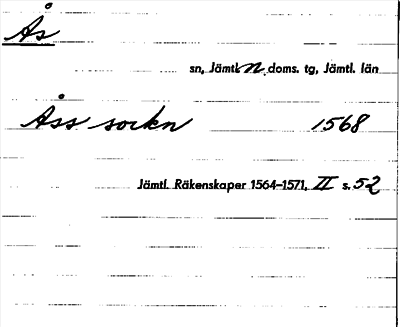 Ås
sn, Jämtl. n. doms. tg, Jämtl. län
Åss sockn 1568
Jämtl. Räkenskaper 1564-1571, II s. 52